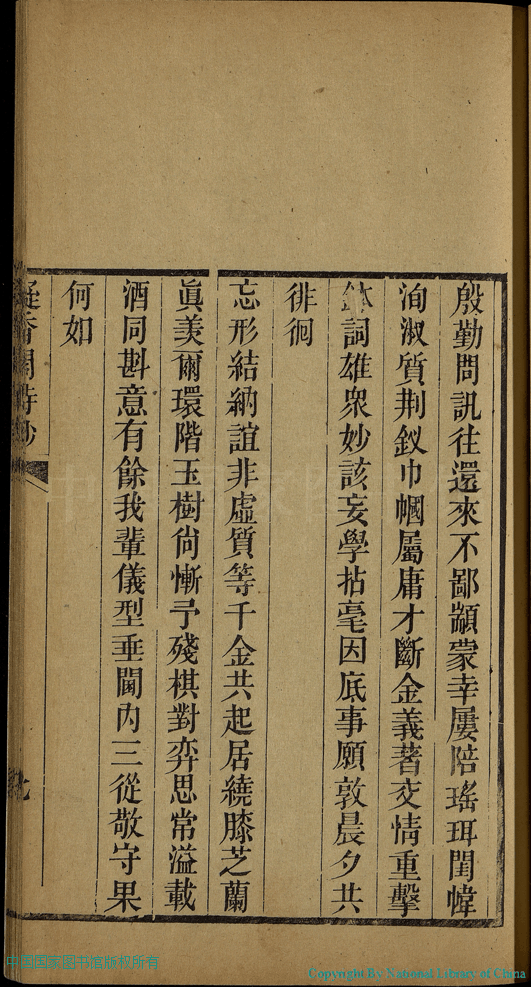 殷勤問訊往還來不鄙顓蒙幸屢陪瑤珥閨幃
洵淑質荆釵巾幗屬庸才斷金義著交情重擊
鉢詞雄衆妙該妄學拈毫因底事願敦晨夕共
徘徊
忘形結納誼非虛質等千金共起居繞膝芝蘭
眞美爾環階玉樹尙慚予殘棋對弈思常溢載
酒同斟意有餘我輩儀型垂閫內三從敬守果
何如
凝香閣詩鈔
中国国家图书馆版权所有
Copyright By National Library of China